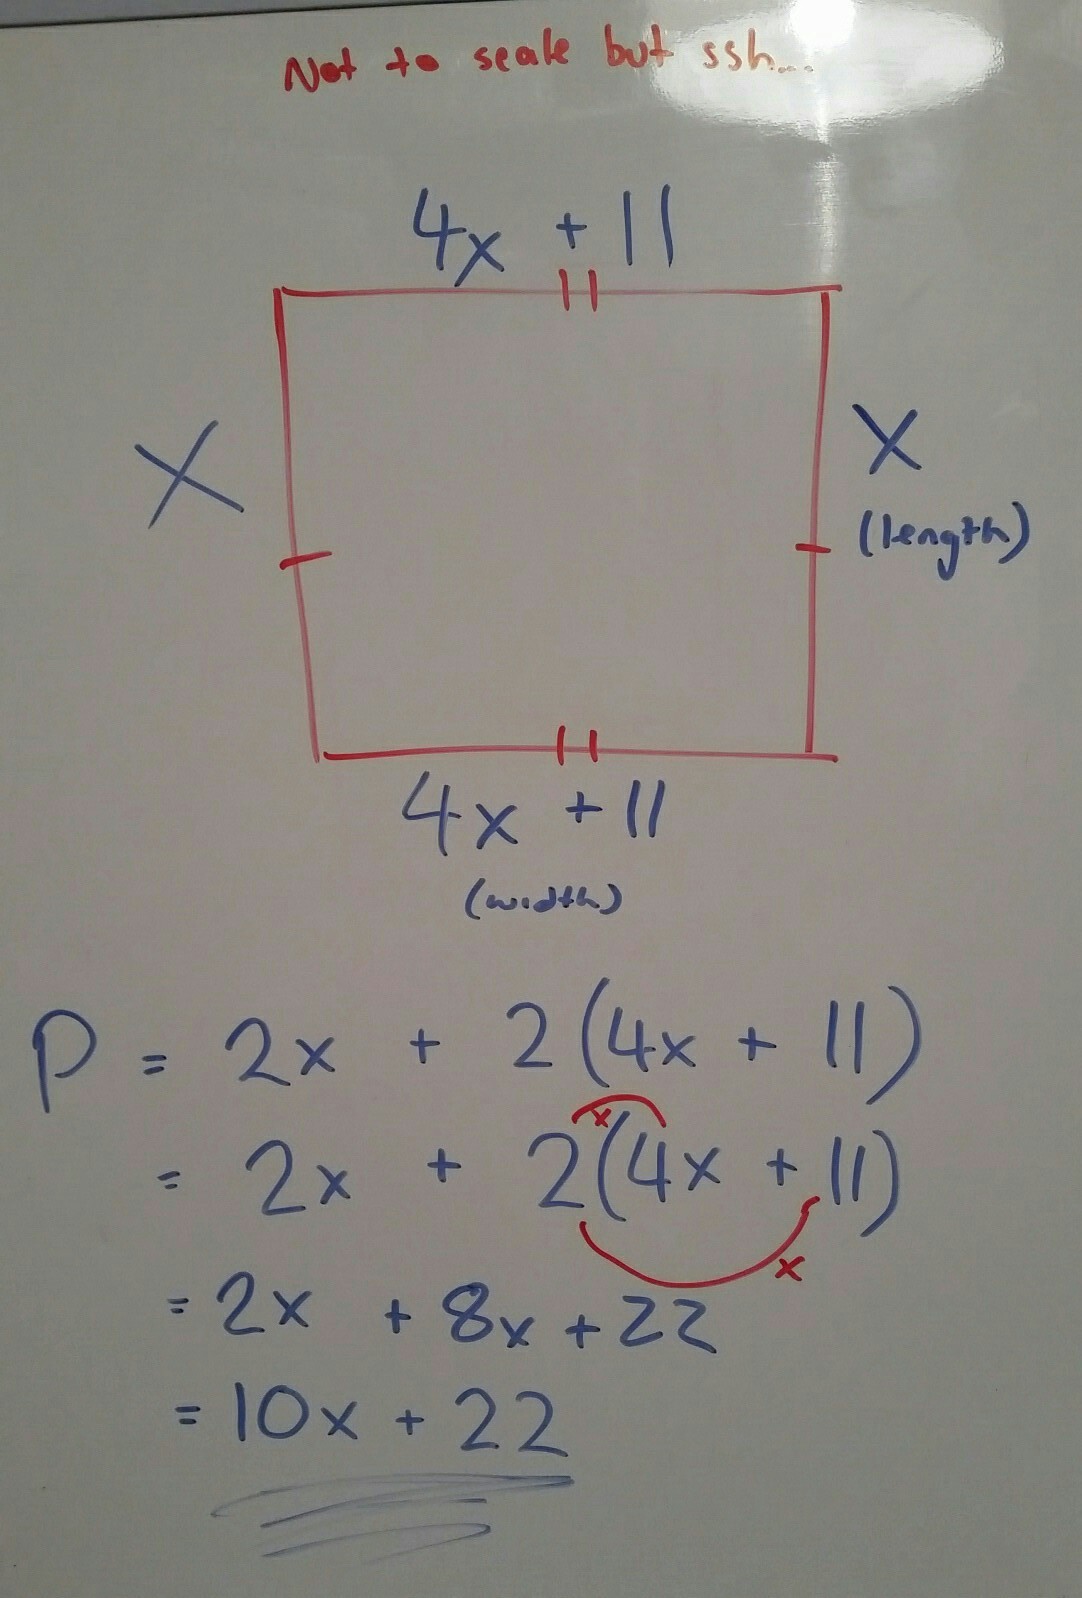 Not to scale but ssh...
4x + 11
X
X
(length)
4x + 11
(width)
P = 2x + 2(4x + 11)
= 2x + 2(4x + 11)
x
x
= 2x + 8x + 22
= 10x + 22